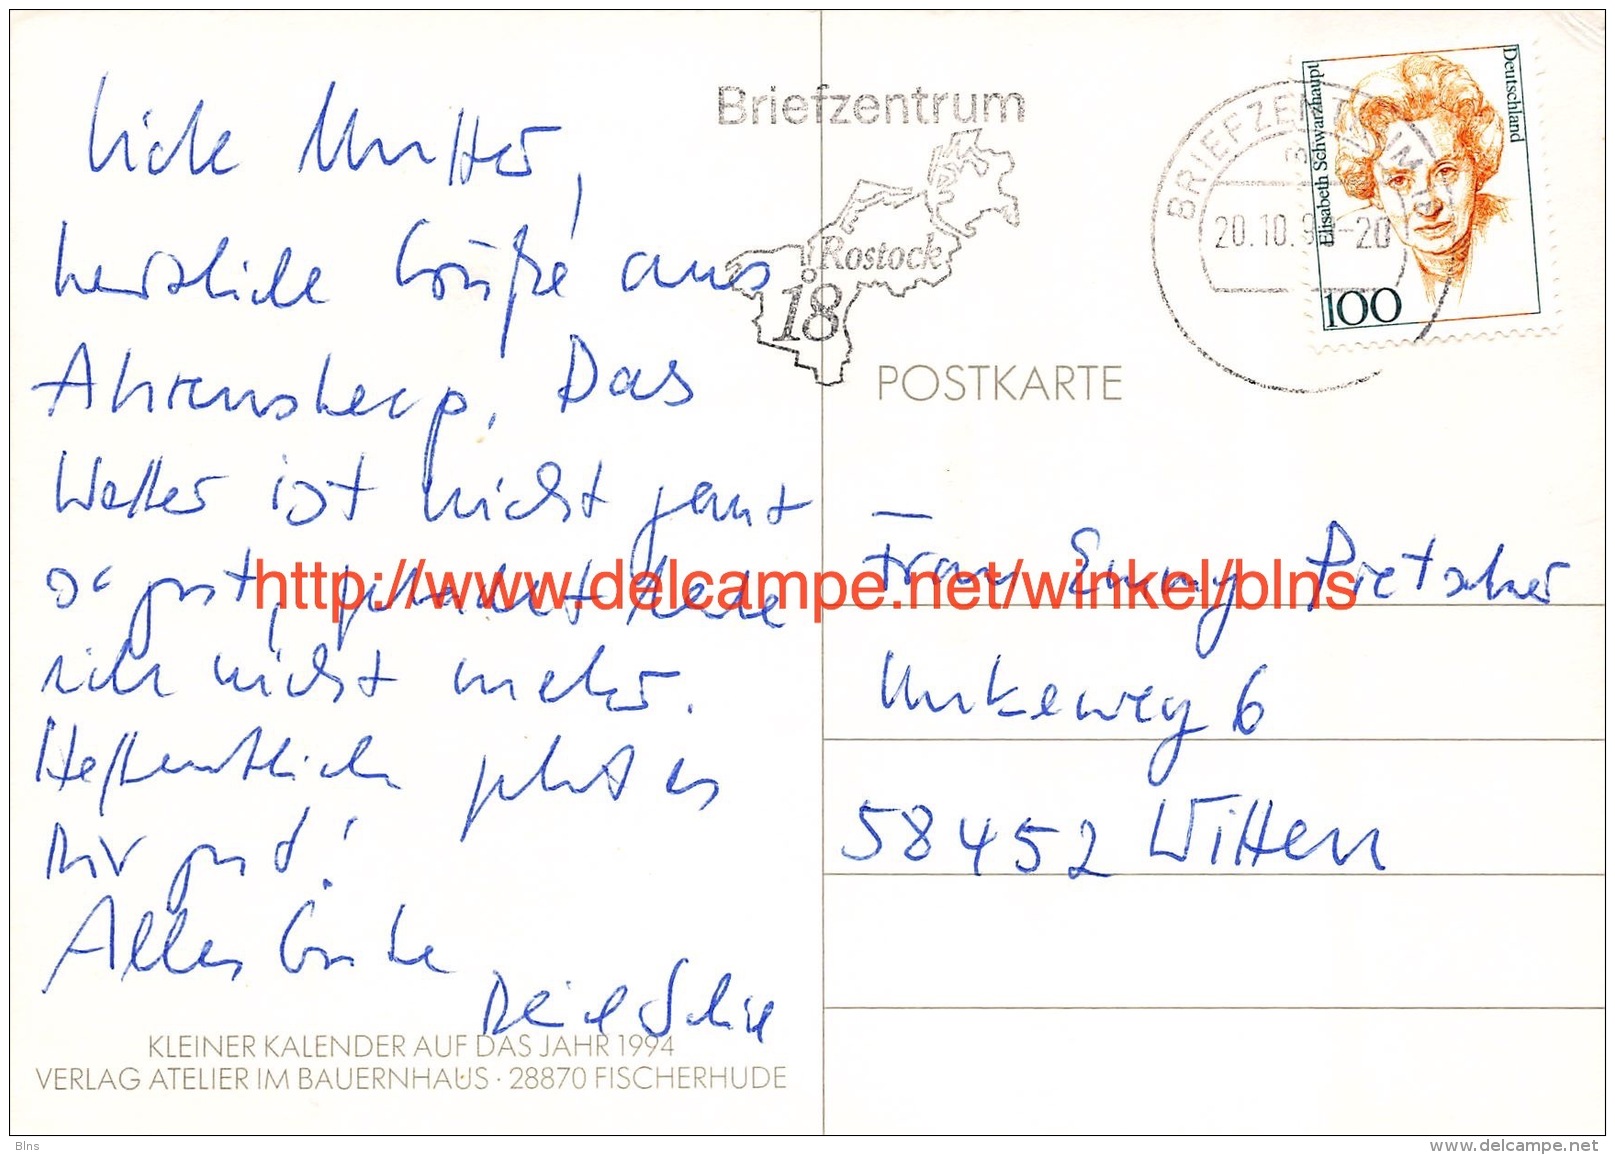 Liebe Mutter,
herzliche Grüße aus
Ahrenshoop. Das
Wetter ist nicht ganz
so gut,
nicht mehr.
Hoffentlich geht es
Dir gut!
Alles Gute
Deine
KLEINER KALENDER AUF DAS JAHR 1994
VERLAG ATELIER IM BAUERNHAUS · 28870 FISCHERHUDE
Briefzentrum
Rostock
18
BRIEFZENTRUM
20.10.9 -20
Deutschland
Elisabeth Schwarzhaupt
100
POSTKARTE
Frau Emmy Pretscher
6
58452 Witten
http://www.delcampe.net/winkel/blns
Blns
www.delcampe.net